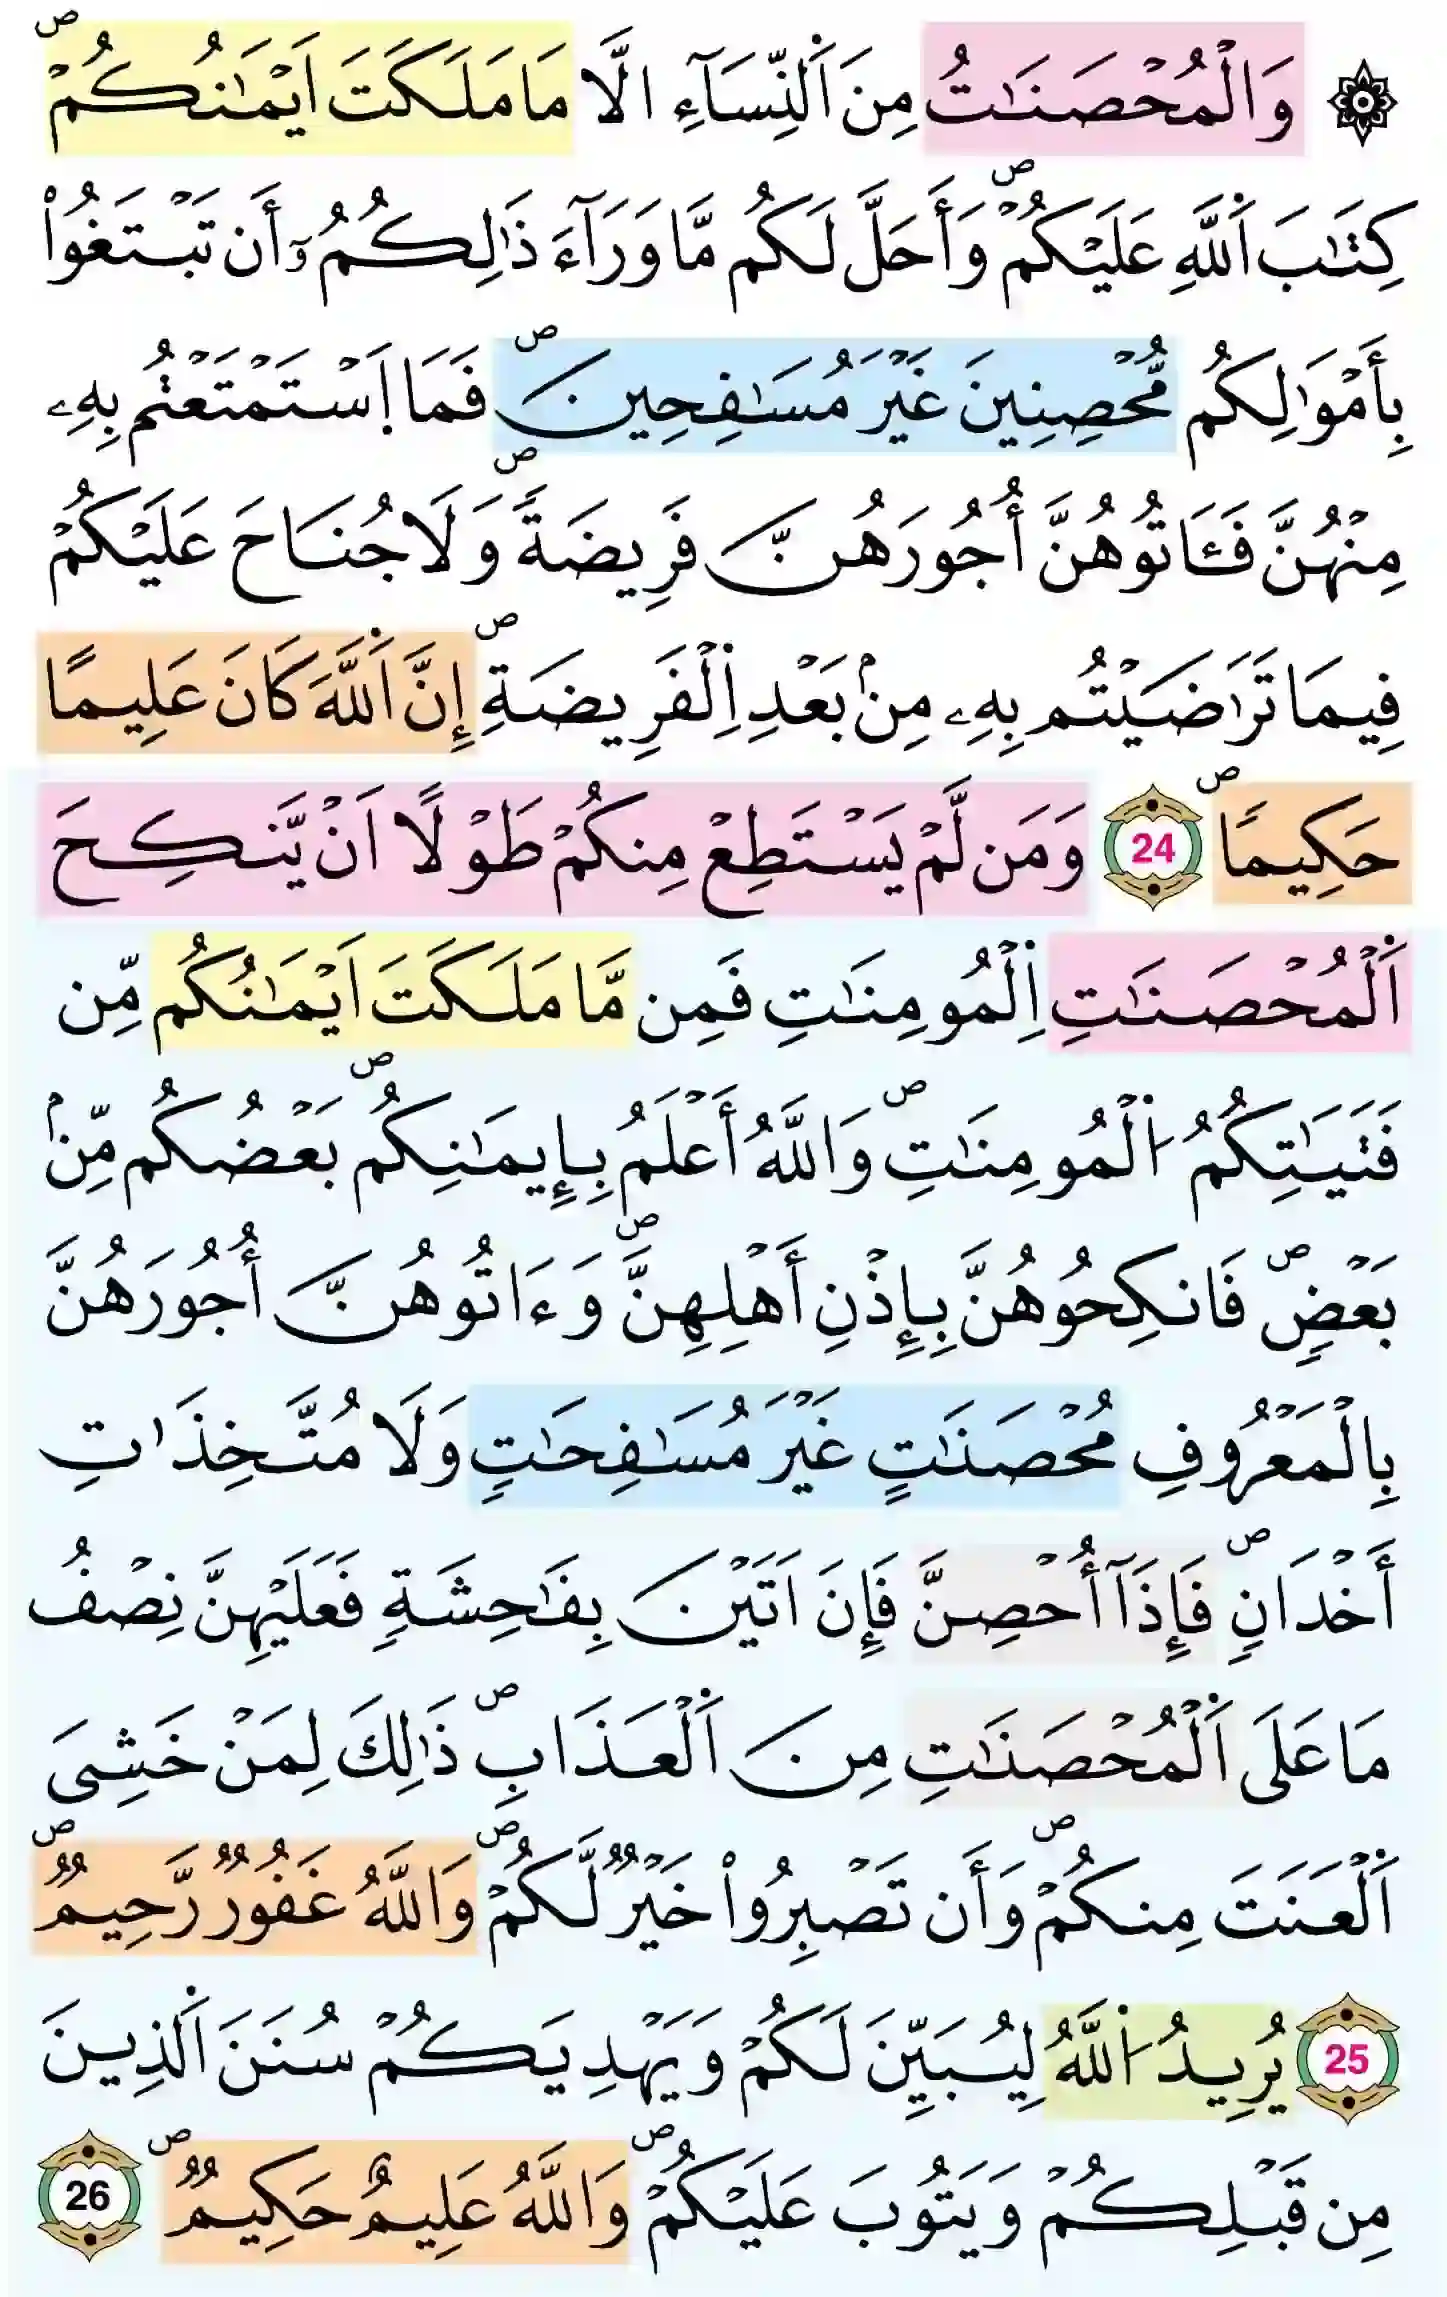 ۞ وَالْمُحْصَنَٰتُ مِنَ اَ۬لنِّسَآءِ الَّا مَا مَلَكَتَ اَيْمَٰنُكُمْۖ
كِتَٰبَ اَ۬للَّهِ عَلَيْكُمْۖ وَأَحَلَّ لَكُم مَّا وَرَآءَ ذَٰلِكُمُۥٓ أَن تَبْتَغُواْ
بِأَمْوَٰلِكُم مُّحْصِنِينَ غَيْرَ مُسَٰفِحِينَۖ فَمَا اَ۪سْتَمْتَعْتُم بِهِۦ
مِنْهُنَّ فَـَٔاتُوهُنَّ أُجُورَهُنَّ فَرِيضَةًۖ وَلَا جُنَاحَ عَلَيْكُمْ
فِيمَا تَرَٰضَيْتُم بِهِۦ مِنۢ بَعْدِ اِ۬لْفَرِيضَةِۖ إِنَّ اَ۬للَّهَ كَانَ عَلِيمًا
حَكِيمًاۖ 24 وَمَن لَّمْ يَسْتَطِعْ مِنكُمْ طَوْلًا اَنْ يَّنكِحَ
اَ۬لْمُحْصَنَٰتِ اِ۬لْمُومِنَٰتِ فَمِن مَّا مَلَكَتَ اَيْمَٰنُكُم مِّن
فَتَيَٰتِكُمُ اُ۬لْمُومِنَٰتِۖ وَاللَّهُ أَعْلَمُ بِإِيمَٰنِكُمۖ بَعْضُكُم مِّنۢ
بَعْضٖۖ فَانكِحُوهُنَّ بِإِذْنِ أَهْلِهِنَّۖ وَءَاتُوهُنَّ أُجُورَهُنَّ
بِالْمَعْرُوفِ مُحْصَنَٰتٍ غَيْرَ مُسَٰفِحَٰتٖ وَلَا مُتَّخِذَٰتِ
أَخْدَانٖۖ فَإِذَآ أُحْصِنَّ فَإِنَ اَتَيْنَ بِفَٰحِشَةٖ فَعَلَيْهِنَّ نِصْفُ
مَا عَلَى اَ۬لْمُحْصَنَٰتِ مِنَ اَ۬لْعَذَابِۖ ذَٰلِكَ لِمَنْ خَشِيَ
اَ۬لْعَنَتَ مِنكُمْۖ وَأَن تَصْبِرُواْ خَيْرٞ لَّكُمْۖ وَاللَّهُ غَفُورٞ رَّحِيمٞۖ
25 يُرِيدُ اُ۬للَّهُ لِيُبَيِّنَ لَكُمْ وَيَهْدِيَكُمْ سُنَنَ اَ۬لذِينَ
مِن قَبْلِكُمْ وَيَتُوبَ عَلَيْكُمْۖ وَاللَّهُ عَلِيمٌ حَكِيمٞۖ 26